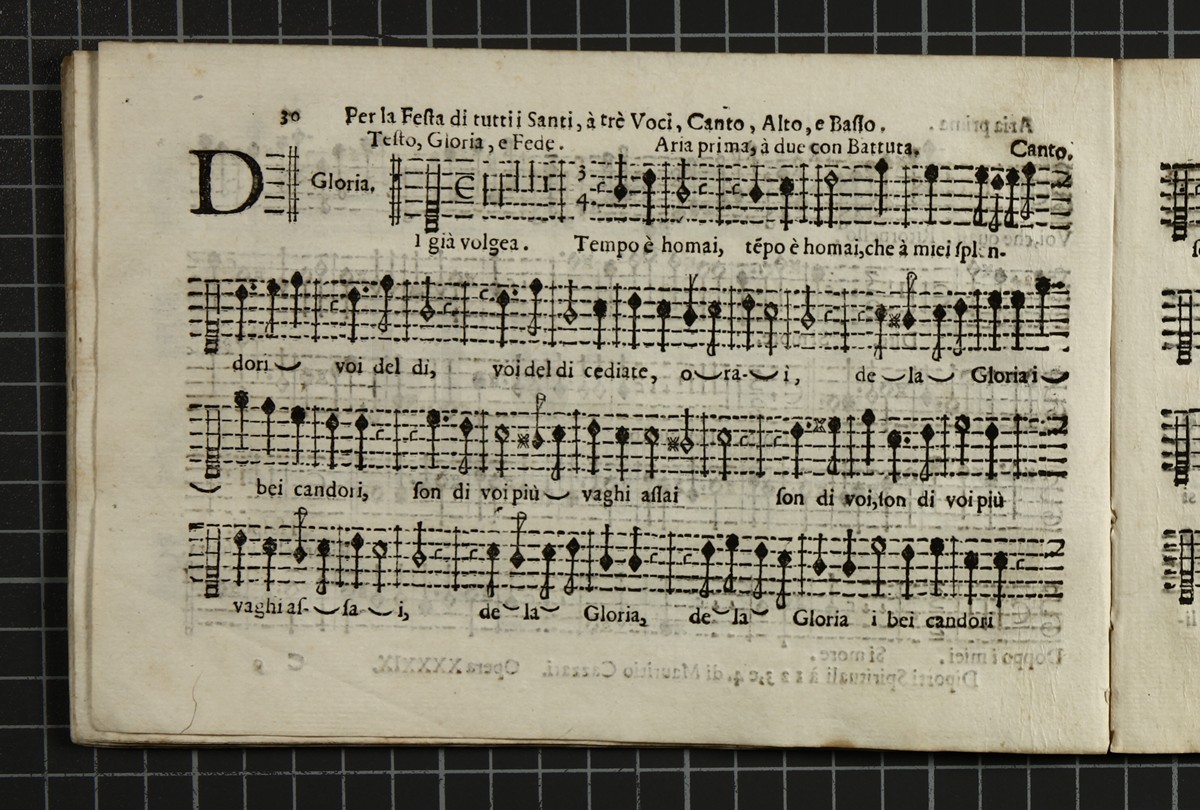 30 Per la Feſta di tutti i Santi, à trè Voci, Canto, Alto, e Baſſo.
Teſto, Gloria, e Fede. Aria prima, à due con Battuta. Canto.
D Gloria. 3 4
I già volgea. Tempo è homai, tẽpo è homai, che à miei ſplen-
dori voi del di, voi del di cediate, o-ra-i, de la Gloria i
bei candori, ſon di voi più vaghi aſſai ſon di voi, ſon di voi più
vaghi aſ-ſa i, de la Gloria, de la Gloria i bei candori
Doppo i miei. Si more.
Diporti Spirituali à 1 2 3, e 4. di Mauritio Cazzati. Opera XXXXIX. C